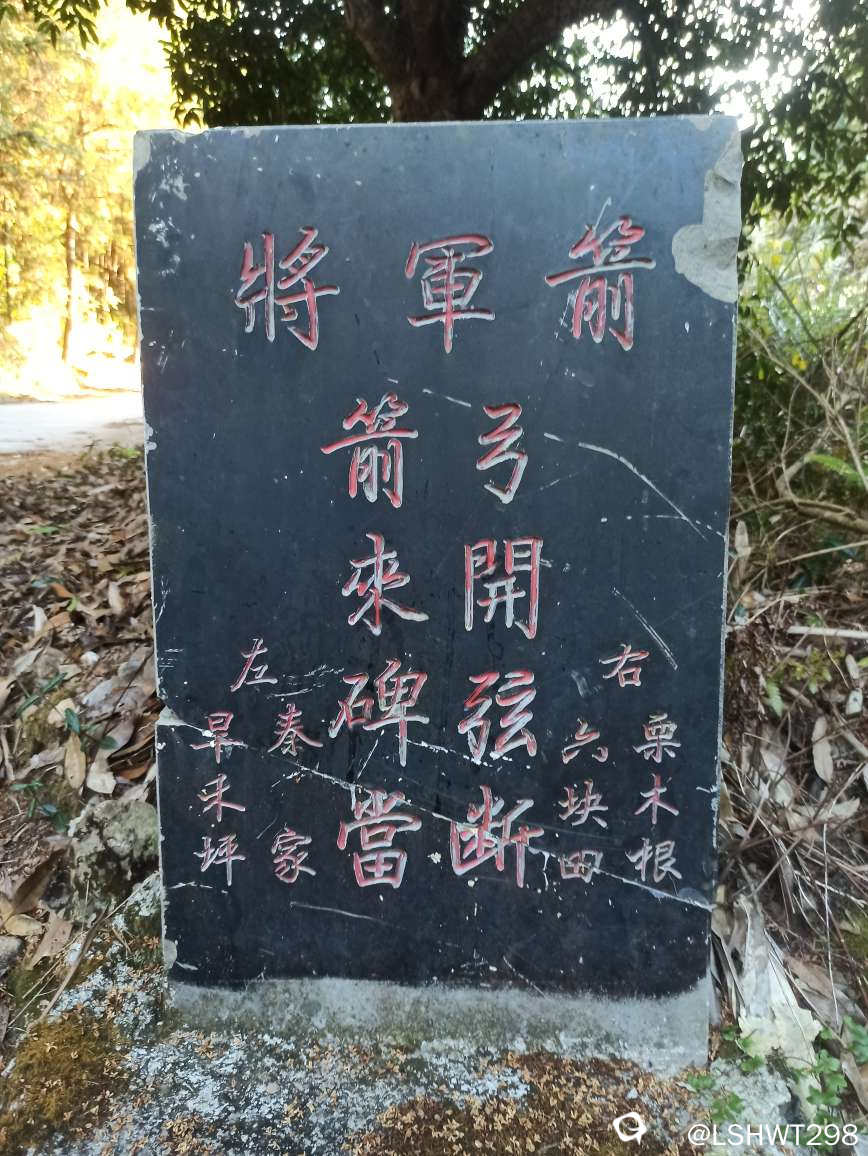 將軍箭
右
栗木根
六块田
弓開弦断
箭來碑當
左
秦家
早禾坪
@LSHWT298